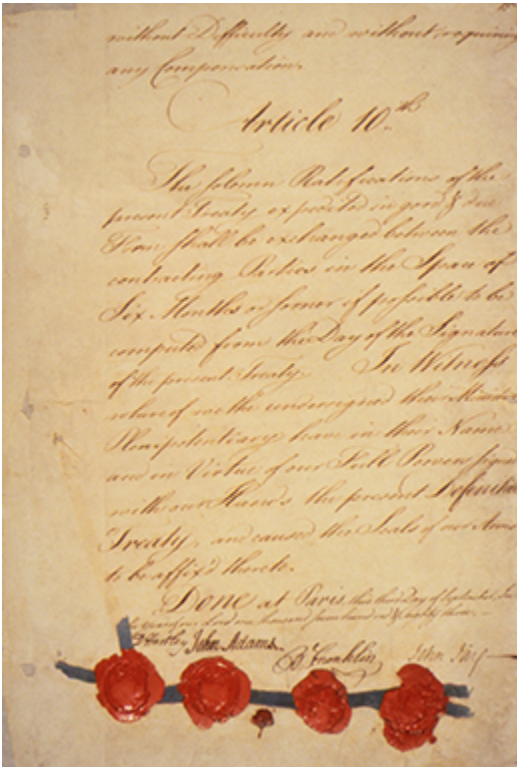 without Difficulty and without requiring
any Compensation.
Article 10.th
The solemn Ratifications of the
present Treaty expedited in good & due
Form shall be exchanged between the
contracting Parties in the Space of
Six Months or sooner if possible to be
computed from the Day of the Signature
of the present Treaty. In Witness
whereof we the undersigned their Ministers
Plenipotentiary have in their Name
and in Virtue of our Full Powers signed
with our Hands the present Definitive
Treaty, and caused the Seals of our Arms
to be affix'd thereto.
Done at Paris, this third Day of September, In
the year of our Lord one thousand seven hundred & eighty three.
D Hartley John Adams. B Franklin John Jay